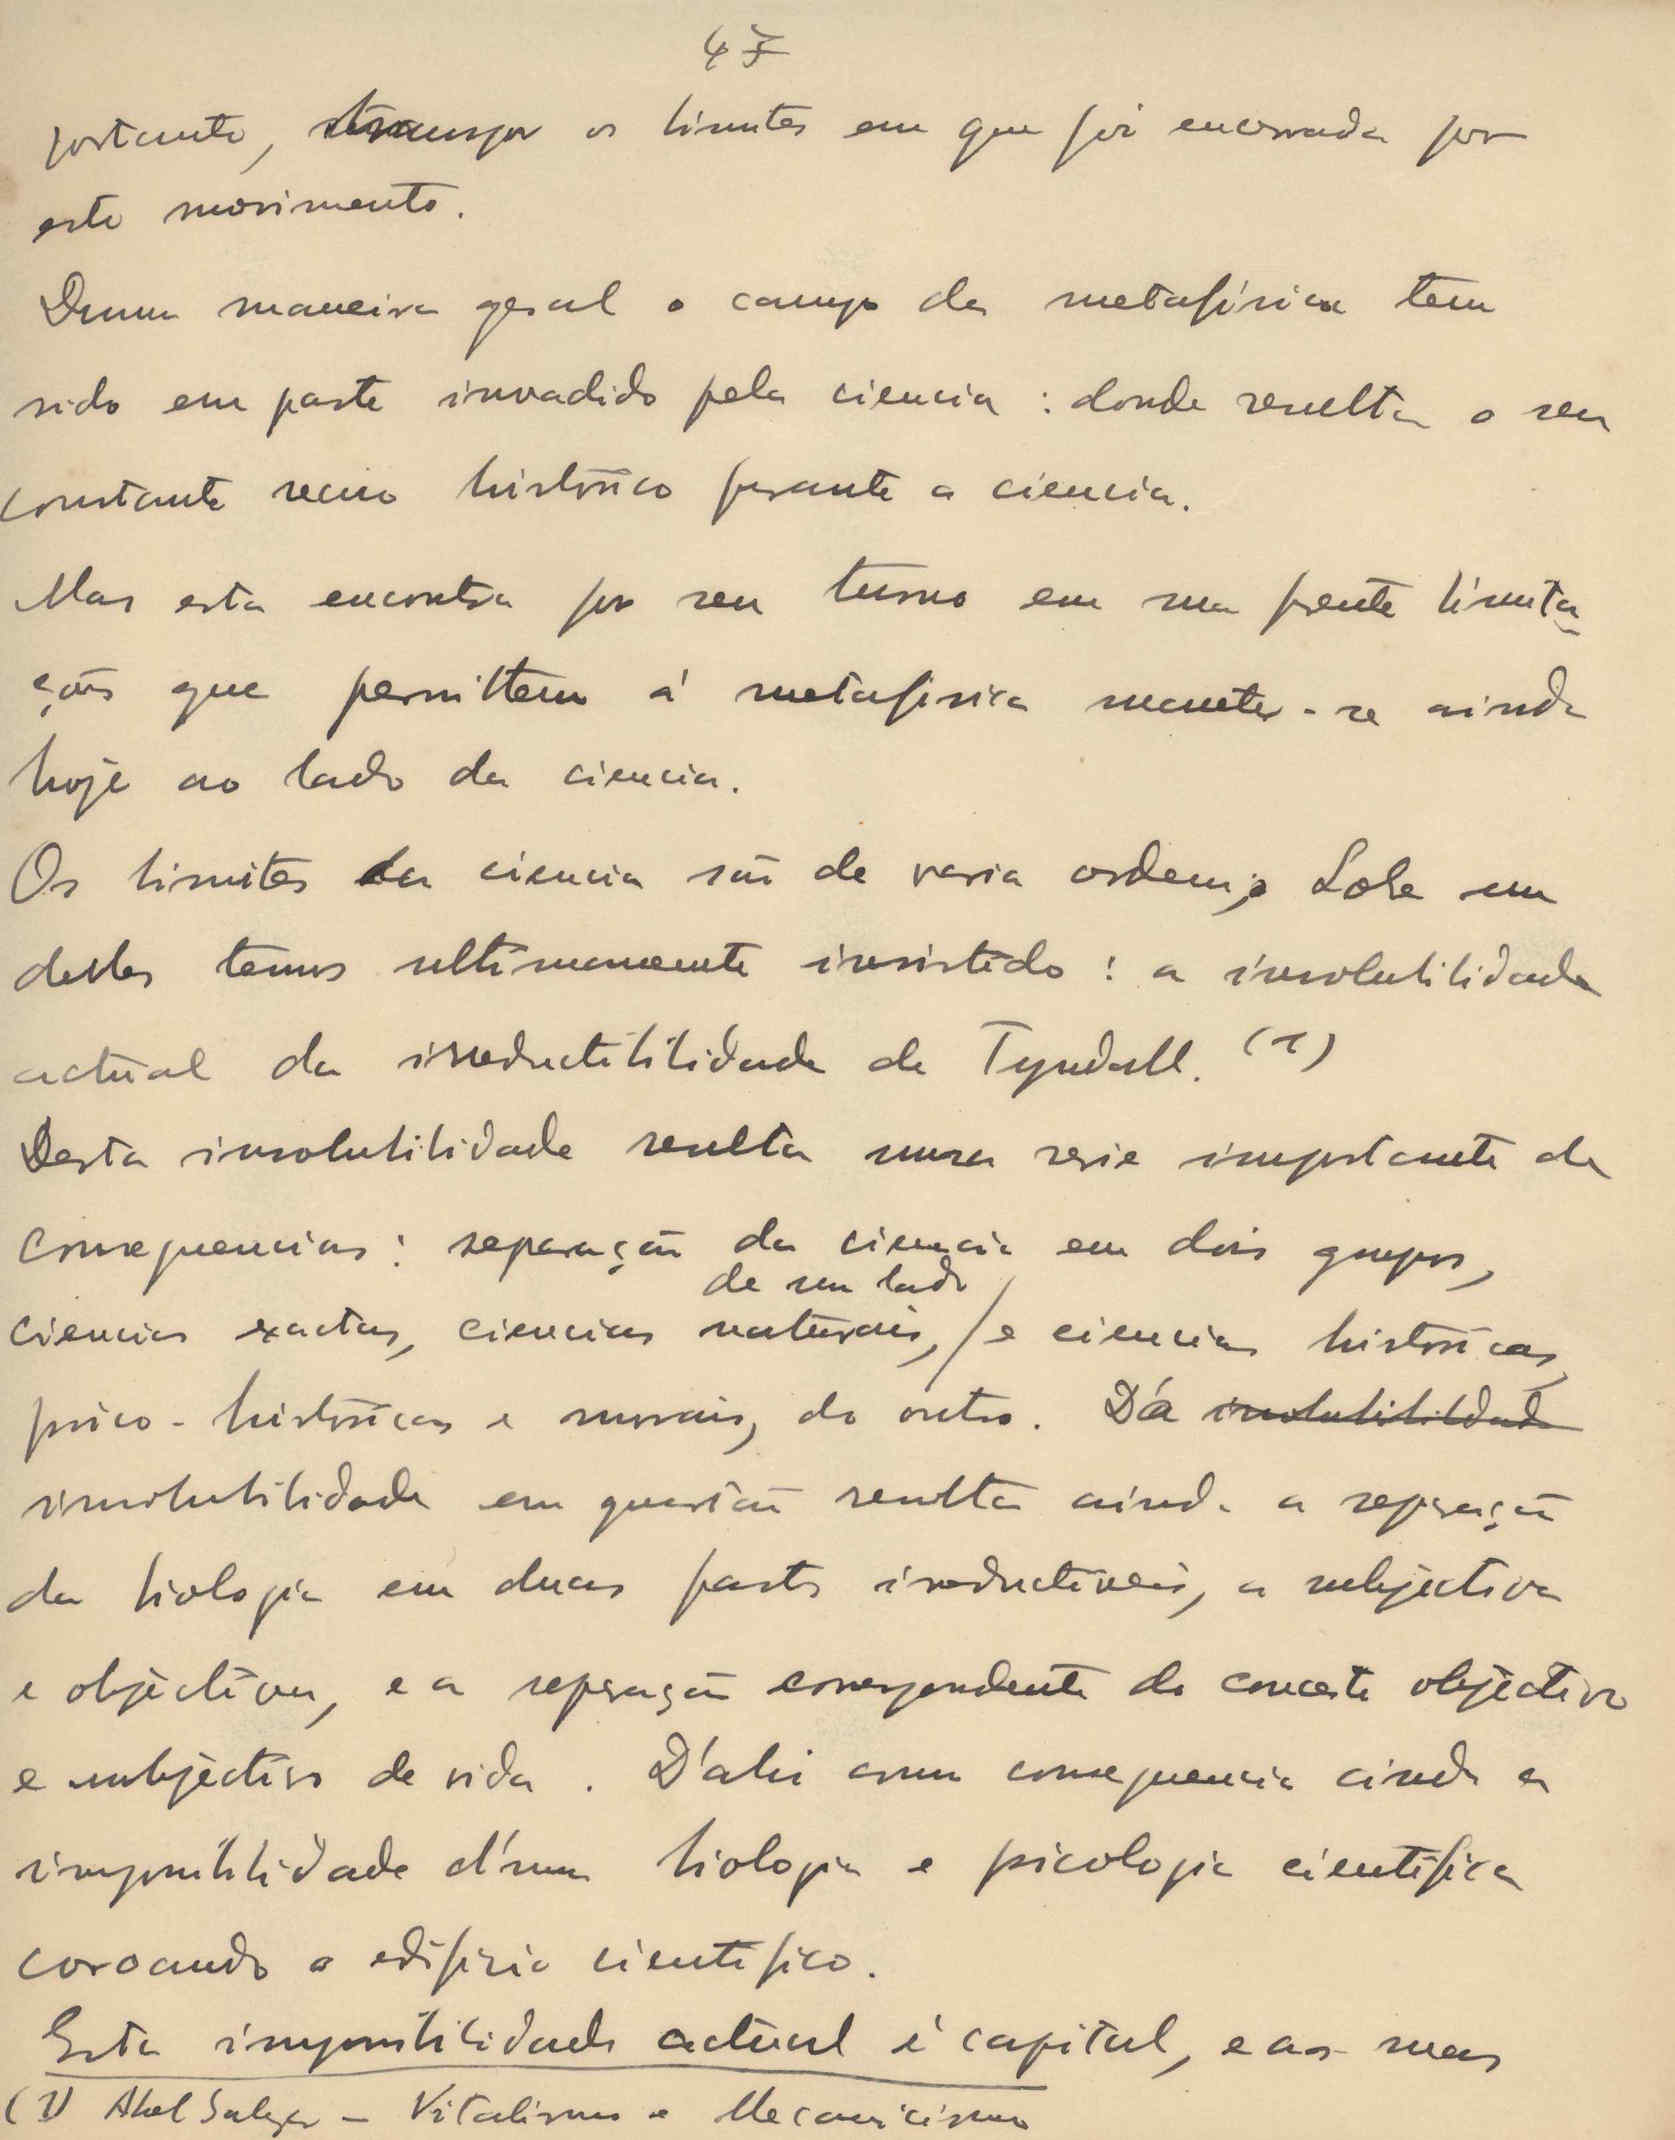 47
portanto, transpor os limites em que foi encerrada por
este movimento.
Duma maneira geral o campo da metafisica tem
sido em parte invadido pela ciencia : donde resulta o seu
constante recuo histórico perante a ciencia.
Mas esta encontra por seu turno em sua frente limita-
ções que permittem á metafisica manter-se ainda
hoje ao lado da ciencia.
Os limites da ciencia são de varia ordem; Sobre um
destes temos ultimamente insistido : a insolubilidade
actual da irreductibilidade de Tyndall. (1)
Desta insolubilidade resulta uma serie importante de
consequencias : separação da ciencia em dois grupos,
de um lado
ciencias exactas, ciencias naturais, / e ciencias históricas,
psico-históricas e morais, do outro. Dá insolubilidade
insolubilidade em questão resulta ainda a separação
da biologia em duas partes irreductiveis, a subjectiva
e objectiva, e a separação correspondente do conceito objectivo
e subjectivo de vida . D'ahi como consequencia ainda a
impossibilidade d'uma biologia e psicologia cientifica
coroando o edificio cientifico.
Esta impossibilidade actual é capital, e as suas
(1) Abel Salazar - Vitalismo e Mecanicismo